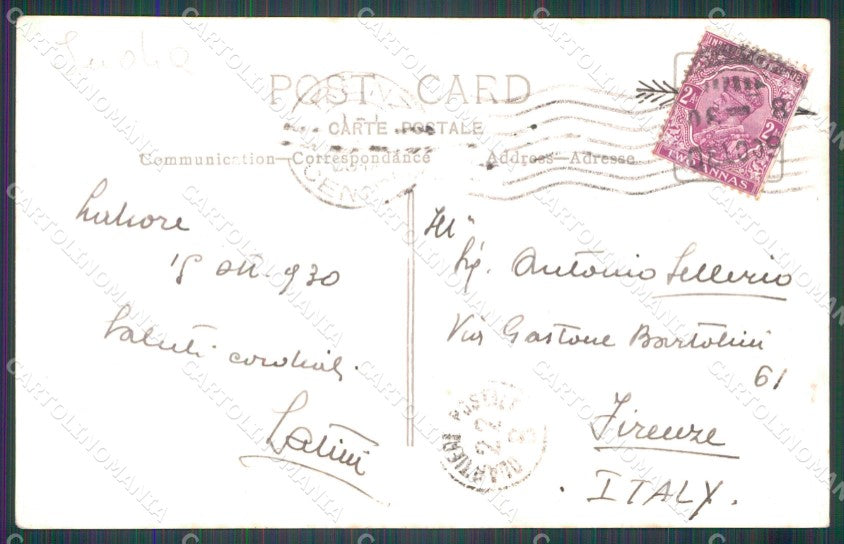 India
POST CARD
CARTE POSTALE
Communication—Correspondance
Address—Adresse
Lahore
15 ott. 930
Saluti cordiali
Latini
Ill.
Sig. Antonio Sellerio
Via Gastone Bartolini
61
Firenze
ITALY.
2
2
TWO ANNAS
QUARTIERI POSTALE
22
CARTOLINOMANIA